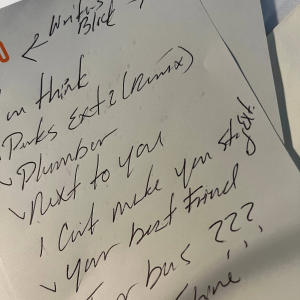 < Writers Block
think
Parks Ext. 2 (remix)
✓ Plumber
✓ Next to you
I Can't make you stay Ext.
✓ Your best Friend
bus ???